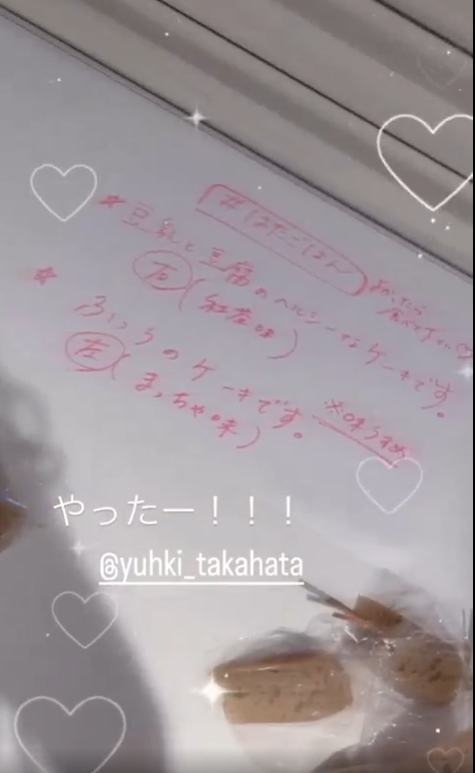 #はたごはん
よかったら
食べて下さい
★豆乳と豆腐のヘルシーなケーキです。
右(紅茶味)
★ふつうのケーキです。※味うすめ
左(まっちゃ味)
やったー！！！
@yuhki_takahata